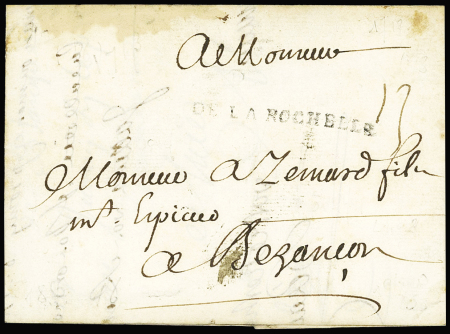 A Monsieur
13
DE LA ROCHELLE
Monsieur A Zemard fils
mᵈ Epicier
a Bezançon